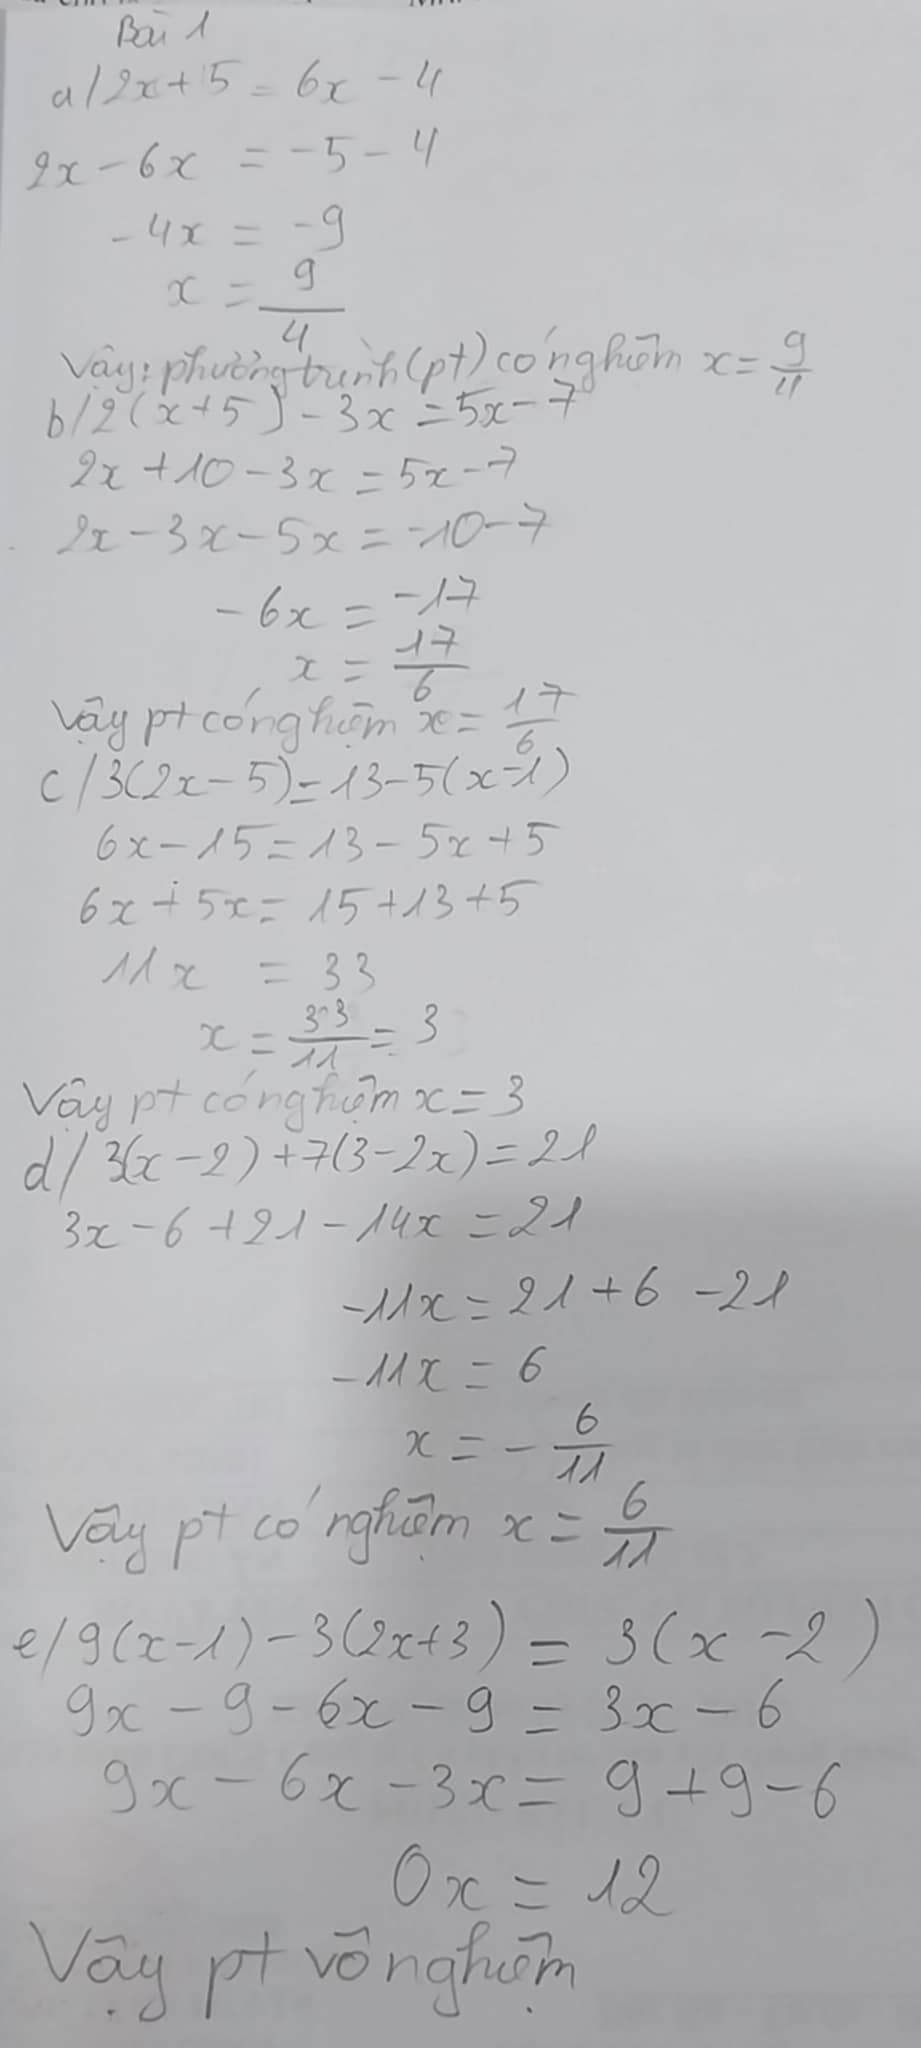 Bài 1
a/ 2x + 5 = 6x - 4
2x - 6x = -5 - 4
-4x = -9
x = 9/4
Vậy: phương trình (pt) có nghiệm x = 9/4
b/ 2(x+5) - 3x = 5x - 7
2x + 10 - 3x = 5x - 7
2x - 3x - 5x = -10 - 7
-6x = -17
x = 17/6
Vậy pt có nghiệm x = 17/6
c/ 3(2x - 5) = 13 - 5(x - 1)
6x - 15 = 13 - 5x + 5
6x + 5x = 15 + 13 + 5
11x = 33
x = 33/11 = 3
Vậy pt có nghiệm x = 3
d/ 3(x - 2) + 7(3 - 2x) = 21
3x - 6 + 21 - 14x = 21
-11x = 21 + 6 - 21
-11x = 6
x = - 6/11
Vậy pt có nghiệm x = 6/11
e/ 9(x-1) - 3(2x+3) = 3(x - 2)
9x - 9 - 6x - 9 = 3x - 6
9x - 6x - 3x = 9 + 9 - 6
0x = 12
Vậy pt vô nghiệm